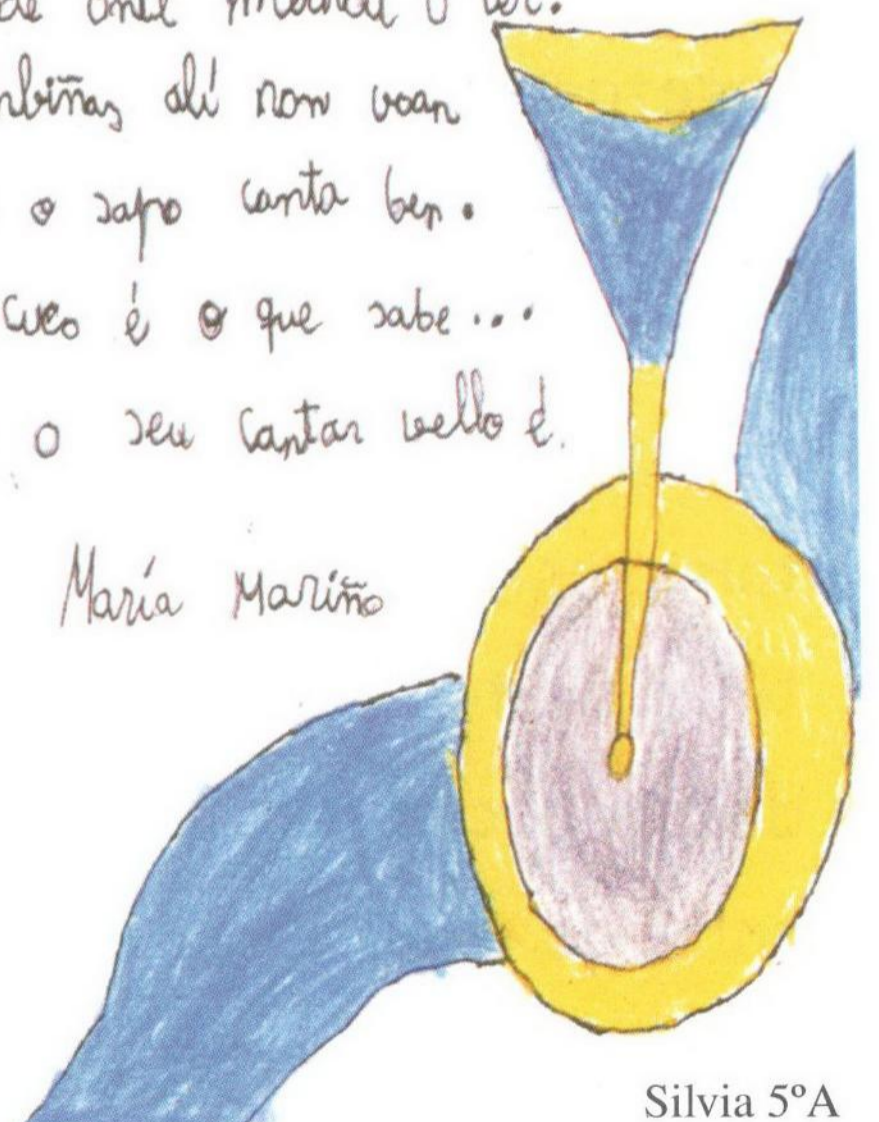 de onde medrou o ler.
nbiñas alí non voan
o sapo canta ben.
cuco é o que sabe...
o seu cantar vello é.
María Mariño
Silvia 5ºA